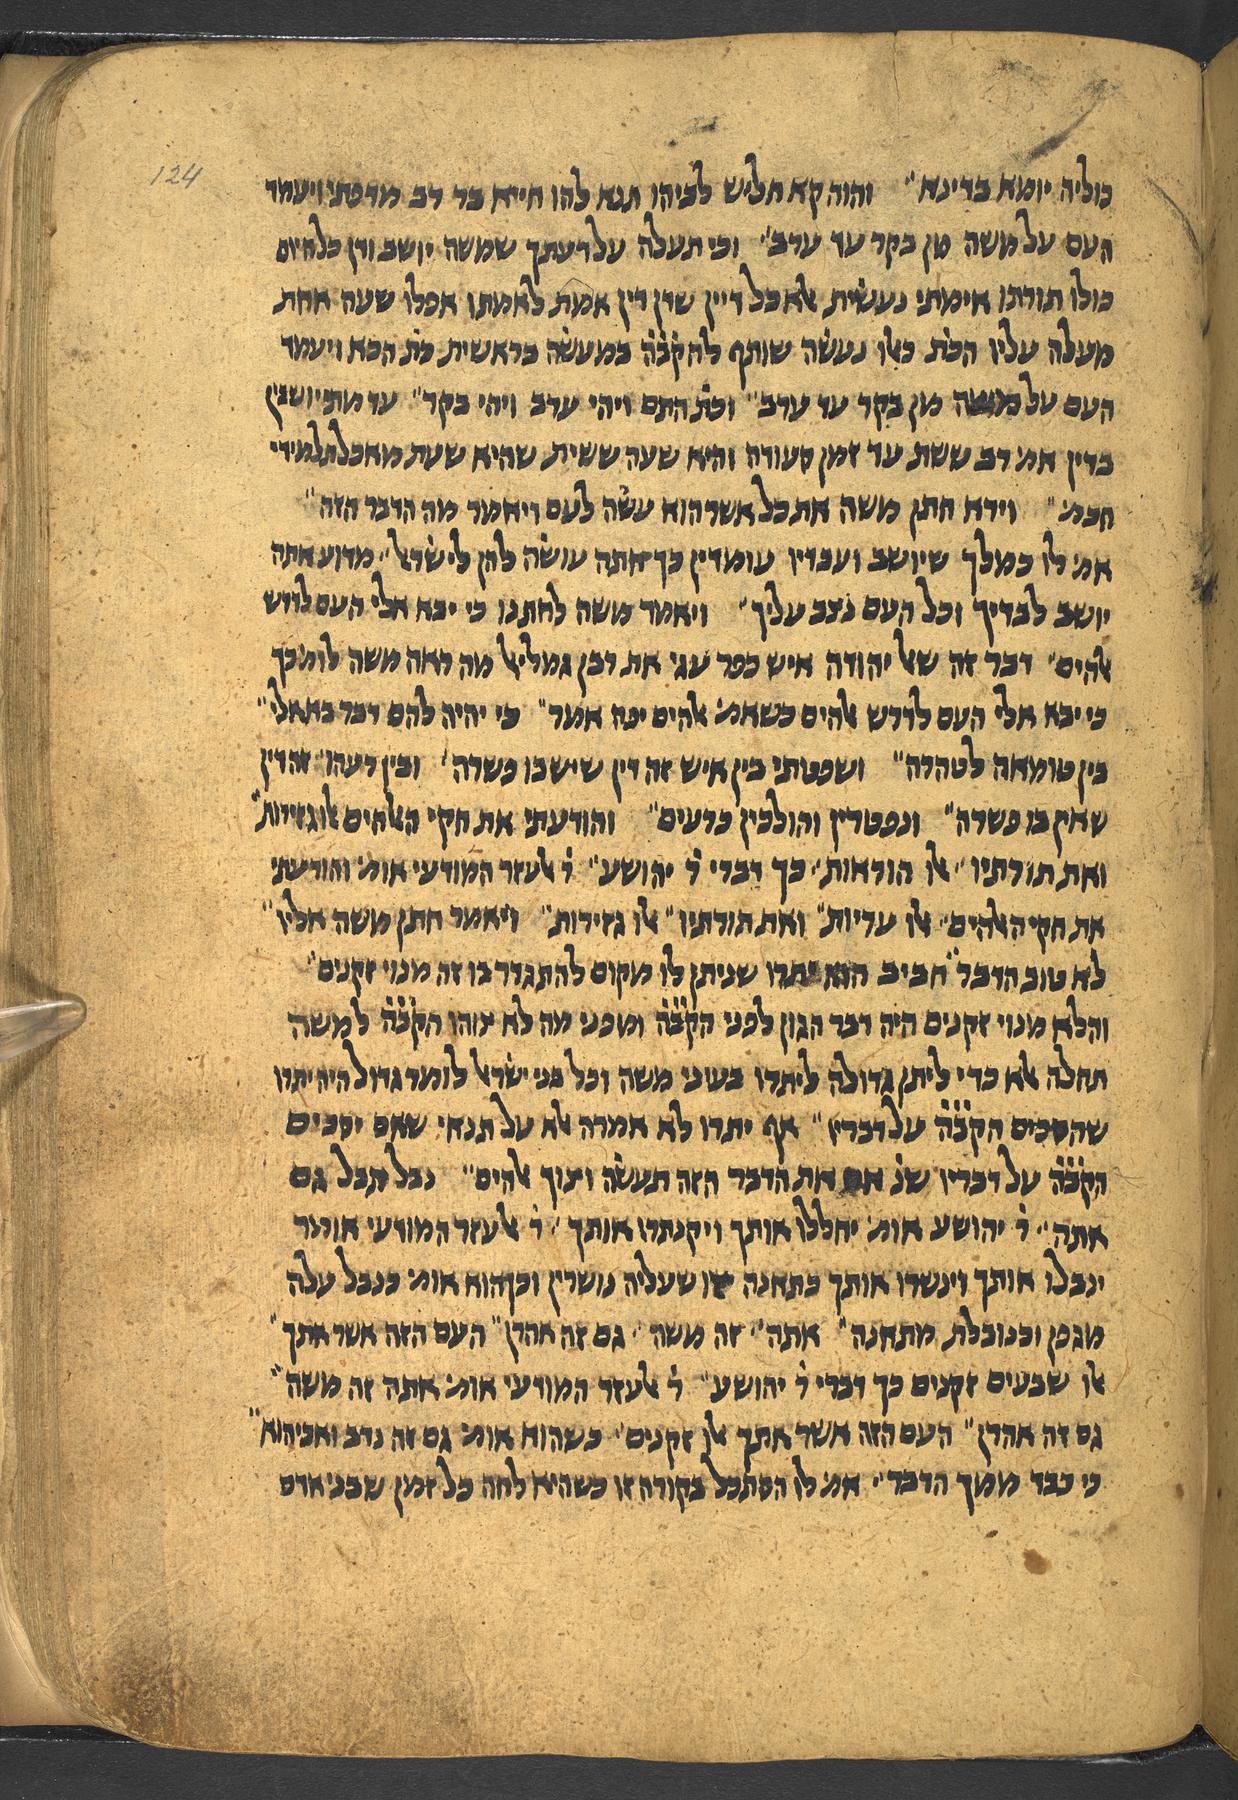 124
כוליה יומא בדינא״ והוה קא חליש לביהו תנא להו חייא בר רב מדפתי ויעמד
העם על משה מן בקר עד ערב״ וכי תעלה על דעתך שמשה יושב ודן כל היום
כולו תורתו אימתי נעשית אלא כל דיין שדן דין אמת לאמתו אפלו שעה אחת
מעלה עליו הכת׳ כאלו נעשה שותף להקב״ה במעשה בראשית כת׳ הכא ויעמד
העם על משה מן בקר עד ערב״ וכת׳ התם ויהי ערב ויהי בקר״ עד מתי יושבין
בדין אמ׳ רב ששת עד זמן סעודה והיא שעה ששית שהיא שעת מאכל תלמידי
חכמ׳״ וירא חתן משה את כל אשר הוא עשה לעם ויאמר מה הדבר הזה״
אמ׳ לו כמלך שיושב ועבדיו עומדין כך אתה עושה להן לישראל״ מדוע אתה
יושב לבדיך וכל העם נצב עליך״ ויאמר משה לחתנו כי יבא אלי העם לדרש
אלהים״ דבר זה שאל יהודה איש כפר עכו את רבן גמליאל מה ראה משה לומ׳ כך
כי יבא אלי העם לדרש אלהים כשאמ׳ אלהים יפה אמר״ כי יהיה להם דבר בא אלי״
בין טומאה לטהרה״ ושפטתי בין איש זה דין שיש בו פשרה״ ובין רעהו״ זה דין
שאין בו פשרה״ ונפטרין והולכין כרעים״ והודעתי את חקי האלהים אלו גזירות״
ואת תורתיו״ אלו הוראות״ כך דברי ר׳ יהושע״ ר׳ אלעזר המודעי אומ׳ והודעתי
את חקי האלהים״ אלו עריות״ ואת תורתיו״ אלו גזירות״ ויאמר חתן משה אליו״
לא טוב הדבר״ חביב הוא יתרו שניתן לו מקום להתגדר בו זה מנוי זקנים״
והלא מנוי זקנים היה דבר הגון לפני הקב״ה ומפני מה לא צוהו הקב״ה למשה
תחלה אלא כדי ליתן גדולה ליתרו בעיני משה וכל בני ישראל לומר גדול היה יתרו
שהסכים הקב״ה על דבריו״ אף יתרו לא אמרה אלא על תנאי שאם יסכים
הקב״ה על דבריו שנ׳ אם את הדבר הזה תעשה וצוך אלהים״ נבל תבל גם
אתה״ ר׳ יהושע אומ׳ יחללו אותך ויקנתרו אותך״ ר׳ אלעזר המודעי אומר
ינבלו אותך וינשרו אותך כתאנה זו שעליה נושרין וכן הוא אומ׳ כנבל עלה
מגפן וכנובלת מתאנה״ אתה״ זה משה״ גם זה אהרן״ העם הזה אשר אתך״
אלו שבעים זקנים כך דברי ר׳ יהושע״ ר׳ אלעזר המודעי אומ׳ אתה זה משה״
גם זה אהרן״ העם הזה אשר אתך אלו זקנים״ כשהוא אומ׳ גם זה נדב ואביהוא״
כי כבד ממך הדבר״ אמ׳ לו הסתכל בקורה זו כשהיא לחה כל זמן שבני אדם